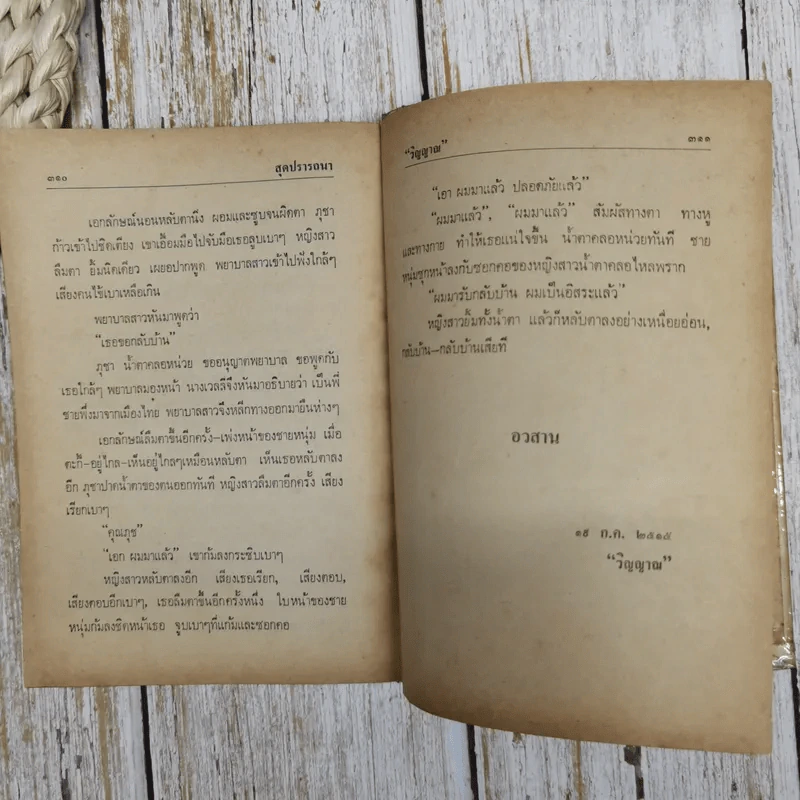 ๓๑๐ สุดปรารถนา
เอกลักษณ์นอนหลับตานิ่ง ผอมและซูบจนผิดตา ภุชา
ก้าวเข้าไปชิดเตียง เขาเอื้อมมือไปจับมือเธอลูบเบาๆ หญิงสาว
ลืมตา ยิ้มนิดเดียว เผยอปากพูด พยาบาลสาวเข้าไปฟังใกล้ๆ
เสียงคนไข้เบาเหลือเกิน
พยาบาลสาวหันมาพูดว่า
“เธอขอกลับบ้าน”
ภุชา น้ำตาคลอหน่วย ขออนุญาตพยาบาล ขอพูดกับ
เธอใกล้ๆ พยาบาลมองหน้า นางเวลลีจึงหันมาอธิบายว่า เป็นพี่
ชายพึ่งมาจากเมืองไทย พยาบาลสาวจึงหลีกทางออกมายืนห่างๆ
เอกลักษณ์ลืมตาขึ้นอีกครั้ง—เพ่งหน้าของชายหนุ่ม เมื่อ
ตะกี้—อยู่ไกล—เห็นอยู่ไกลๆเหมือนหลับตา เห็นเธอหลับตาลง
อีก ภุชาปาดน้ำตาของตนออกทันที หญิงสาวลืมตาอีกครั้ง เสียง
เรียกเบาๆ
“คุณภุช”
“เอก ผมมาแล้ว” เขาก้มลงกระซิบเบาๆ
หญิงสาวหลับตาลงอีก เสียงเธอเรียก, เสียงตอบ,
เสียงตอบอีกเบาๆ, เธอลืมตาขึ้นอีกครั้งหนึ่ง ใบหน้าของชาย
หนุ่มก้มลงชิดหน้าเธอ จูบเบาๆที่แก้มและซอกคอ
“วิญญาณ” ๓๑๑
“เอา ผมมาแล้ว ปลอดภัยแล้ว”
“ผมมาแล้ว”, “ผมมาแล้ว” สัมผัสทางตา ทางหู
และทางกาย ทำให้เธอแน่ใจขึ้น น้ำตาคลอหน่วยทันที ชาย
หนุ่มซุกหน้าลงกับซอกคอของหญิงสาวน้ำตาคลอไหลพราก
“ผมมารับกลับบ้าน ผมเป็นอิสระแล้ว”
หญิงสาวยิ้มทั้งน้ำตา แล้วก็หลับตาลงอย่างเหนื่อยอ่อน,
กลับบ้าน—กลับบ้านเสียที
อวสาน
ก.ค. ๒๕๑๕
“วิญญาณ”